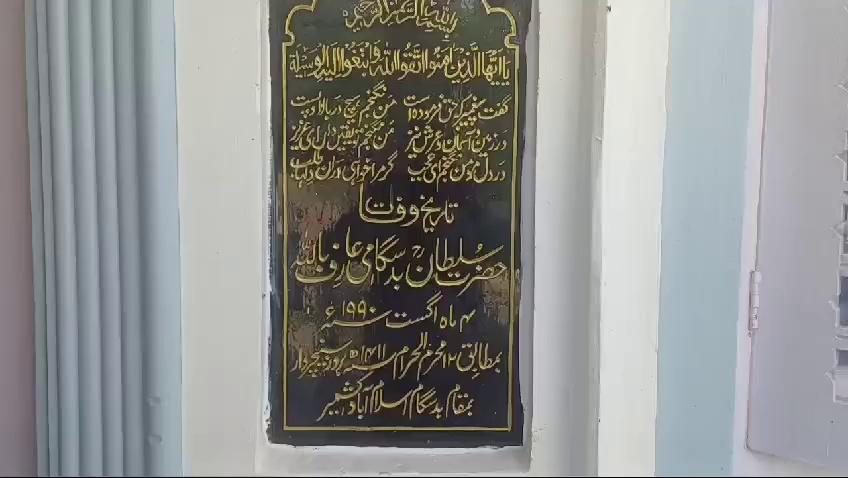 بسم اللہ الرحمن الرحیم
یا ایھا الذین امنوا اتقوا اللہ وابتغوا الیہ الوسیلة
گفت پیغمبر کہ حق فرمودہ است من نگنجم ہیچ در بالا و پست
در زمین و آسمان و عرش نیز من نگنجم تو یقین دان ای عزیز
در دل مومن بگنجم ای عجب گر مرا خواہی دران دلہا طلب
تاریخ وفات
حضرت سلطان بدسگامی عارف باللہ
۴ ماہ اگست سنہ ۱۹۹۰ ء
بمطابق ۱۲ محرم الحرام سنہ ۱۴۱۱ھ بروز سنیچروار
بمقام بدسگام اسلام آباد کشمیر